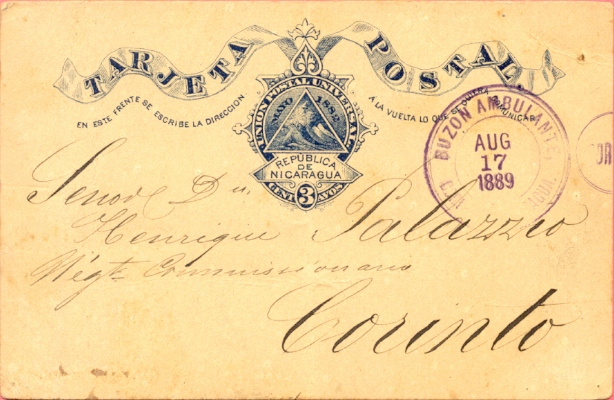 TARJETA POSTAL.
EN ESTE FRENTE SE ESCRIBE LA DIRECCION
A LA VUELTA LO QUE SE QUIERA COMUNICAR
UNION POSTAL UNIVERSAL
MAYO 1882
REPÚBLICA
DE
NICARAGUA
CENT 3 AVOS
BUZON AMBULANTE
AUG
17
1889
Senor Dn
Henrique Palazzio
Negte Commissionario
Corinto